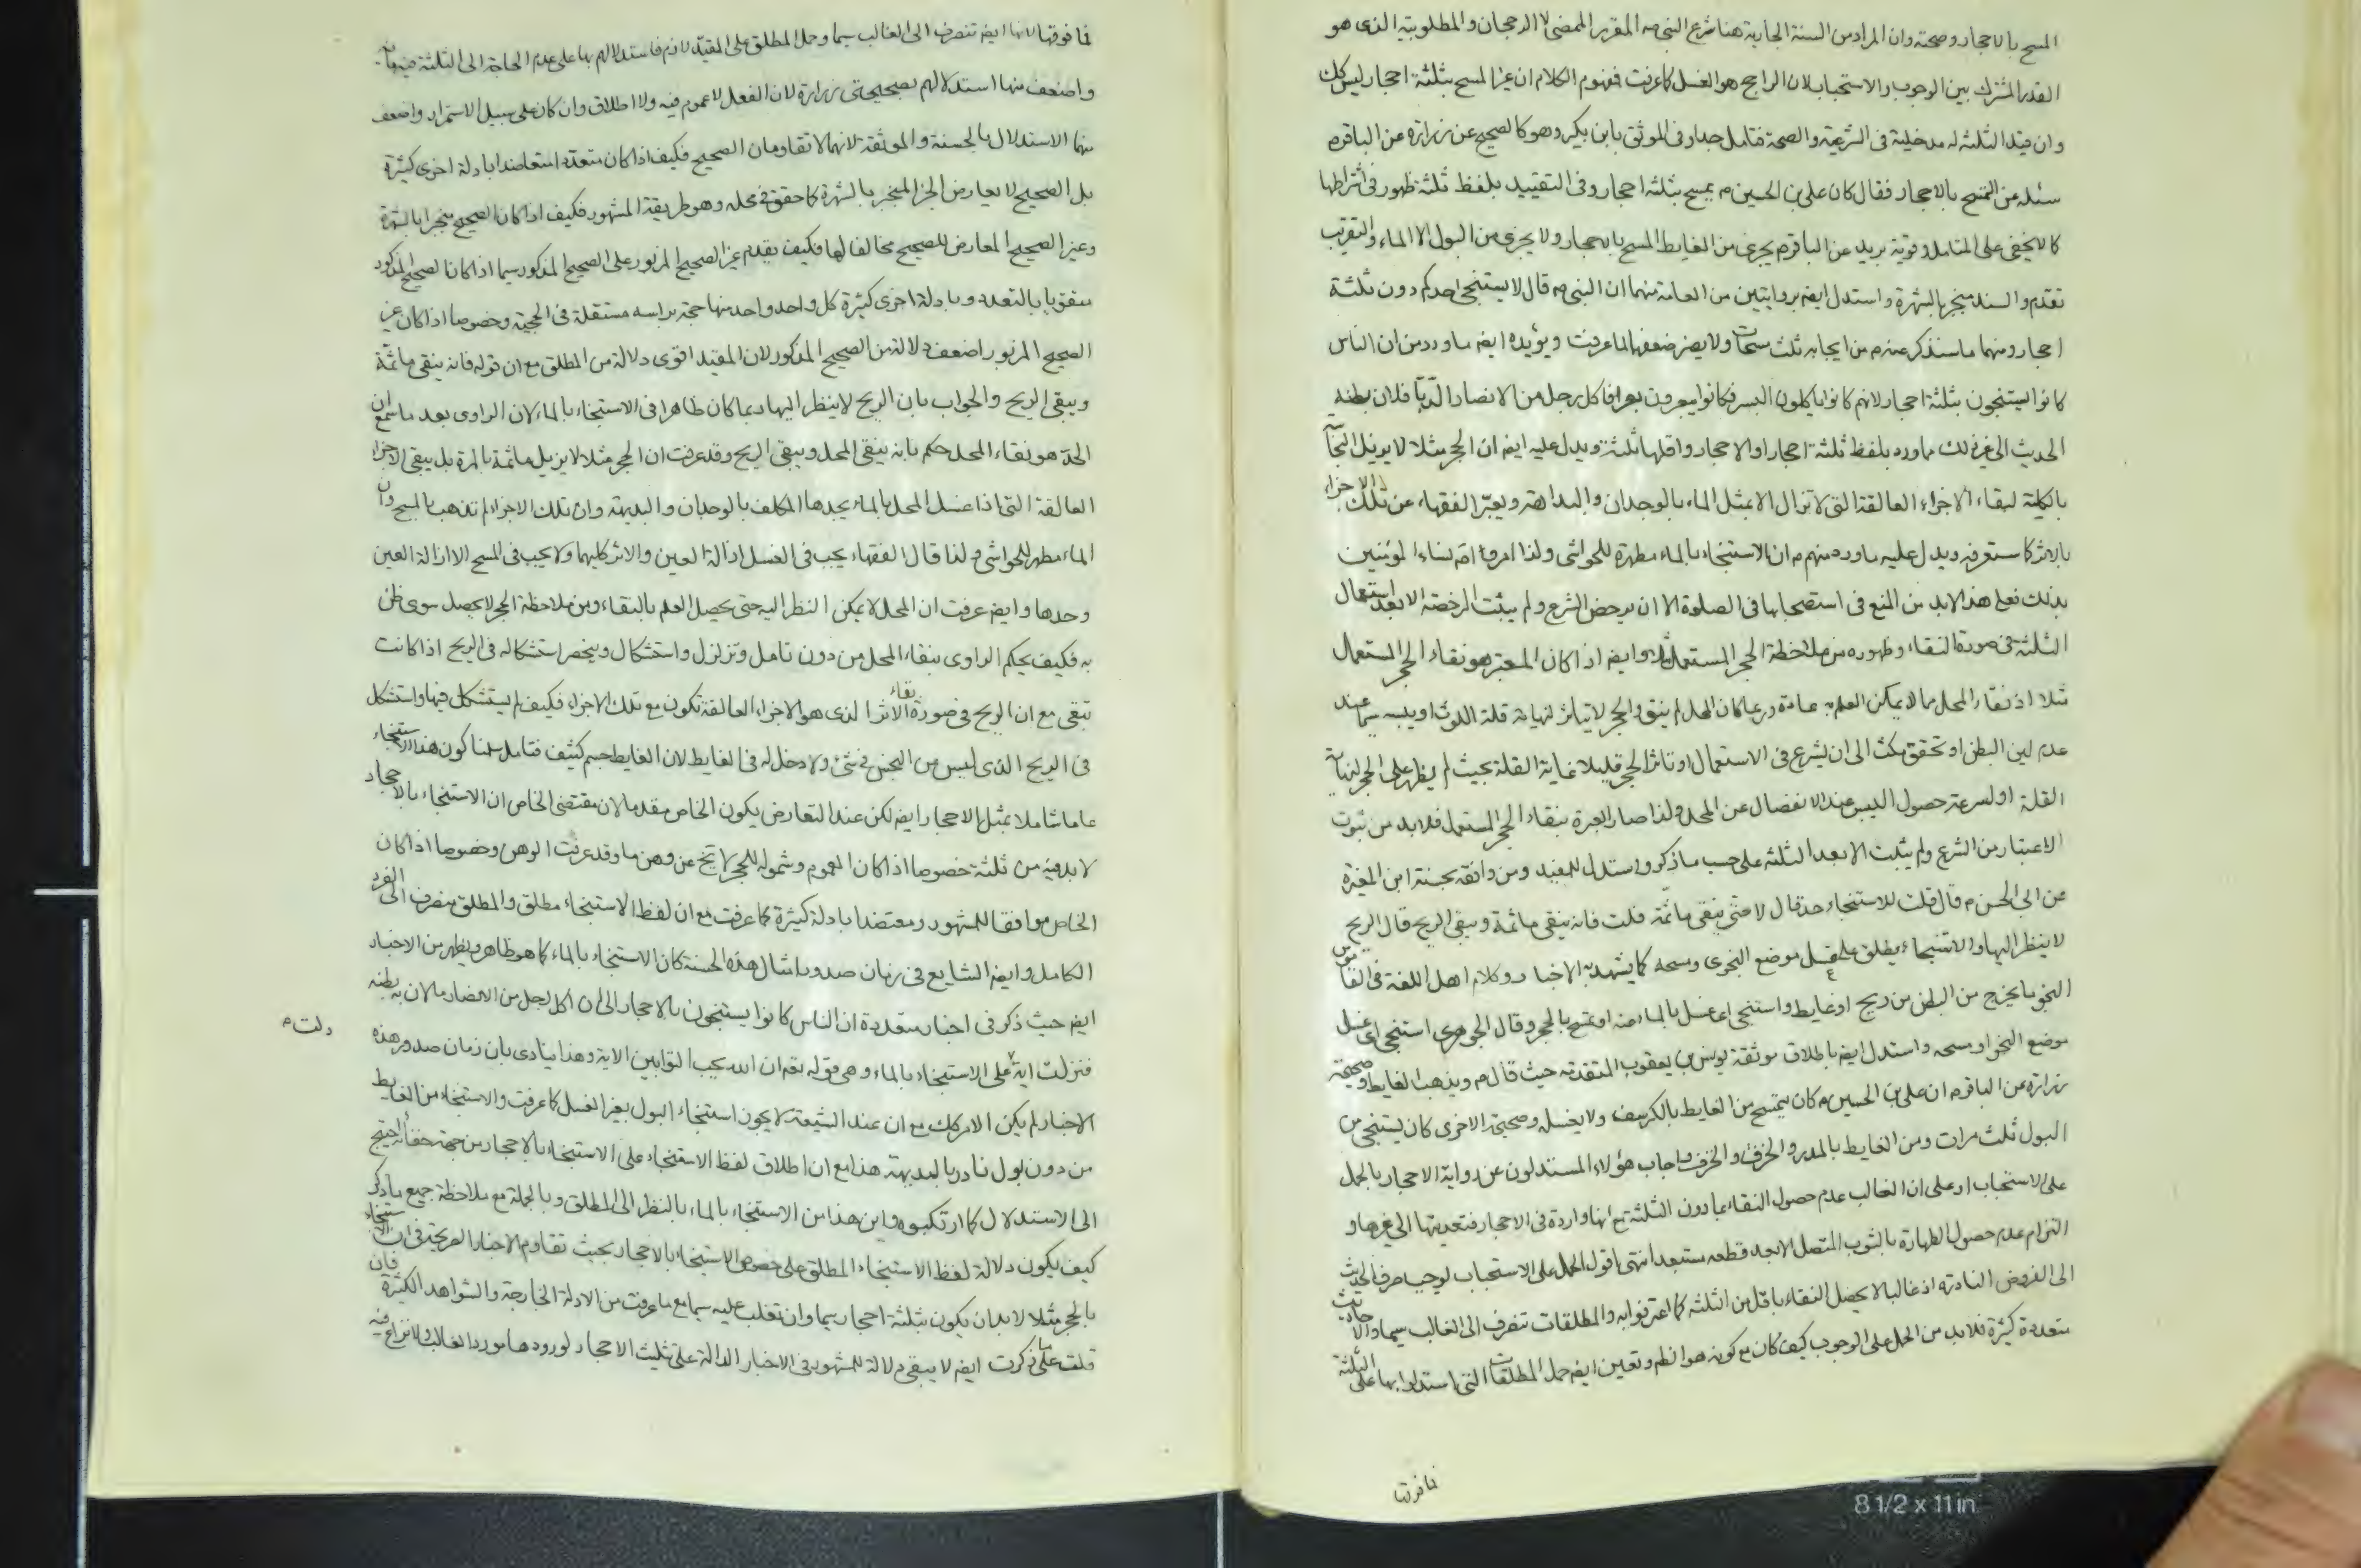 المسح بالاحجار وصحته وان المراد من السنة الجارية هنا شرع النبي ص المقرر الممضى لا الرجحان والمطلوبية الذى هو
القدر المشترك بين الوجوب والاستحباب لان الراجح هو الغسل كما عرفت فمفهوم الكلام ان غير المسح بثلثة احجار ليس كك
وان قيد الثلثة له مدخلية فى الشرعية والصحة فتامل جدا وفى الموثق بابن بكير وهو كالصحيح عن زرارة عن الباقر م
سئله عن التمسح بالاحجار فقال كان على بن الحسين م يمسح بثلثة احجار وفى التقييد بلفظ ثلثة ظهور فى اشتراطها
كما لا يخفى على المتامل وقوية بريد عن الباقر م يجزى من الغايط المسح بالاحجار ولا يجزى من البول الا الماء والتقريب
تقدم والسند منجبر بالشهرة واستدل ايضا بروايتين من العامة منهما ان النبى ص قال لا يستنجى احدكم دون ثلثة
احجار ومنهما ما سنذكر عنه م من ايجابه ثلث مسحات ولا يضر ضعفهما لما عرفت ويؤيده ايضا ما ورد من ان الناس
كانوا يستنجون بثلثة احجار لانهم كانوا ياكلون البسر فكانوا يبعرون بعرا فاكل رجل من الانصار الدبا فلان بطنه
الحديث الى غير ذلك مما ورد بلفظ ثلثة احجار او الاحجار واقلها ثلثة ويدل عليه ايضا ان الحجر مثلا لا يزيل النجاسة
بالكلية لبقاء الاجزاء العالقة التى لا تزال الا بمثل الماء بالوجدان والبداهة ويعبر الفقهاء عن تلك الاجزاء
بالاثر كما ستعرفه ويدل عليه ما ورد منهم م ان الاستنجاء بالماء مطهرة للحواشى ولذا امروا امة نساء المؤمنين
بذلك فعلى هذا لابد من المنع فى استصحابها فى الصلوة الا ان يرخص الشرع ولم يثبت الرخصة الا بعد استعمال
الثلثة فى صورة النقاء وظهوره من ملاحظة الحجر المستعمل وايضا اذا كان المعتبر هو نقاء الحجر المستعمل
مثلا اذ نقاء المحل مما لا يمكن العلم به عادة وربما كان المحل لم ينق والحجر لا يتاثر لنهاية قلة اللوث او يبسه سيما عند
عدم لين البطن او تحقق مكث الى ان يشرع فى الاستعمال او تاثر الحجر قليلا غاية القلة بحيث لم يظهر على الحجر لنهاية
القلة او لسرعة حصول اليبس عند الانفصال عن المحل ولذا صار العبرة بنقاء الحجر المستعمل فلابد من ثبوت
الاعتبار من الشرع ولم يثبت الا بعد الثلثة على حسب ما ذكر واستدل للمفيد ومن وافقه بحسنة ابن المغيرة
عن ابى الحسن م قال قلت للاستنجاء حد قال لا حتى ينقى ماثمة قلت فانه ينقى ماثمة ويبقى الريح قال الريح
لا ينظر اليها والاستنجاء يطلق على غسل موضع النجوى ومسحه كما يشهد به الاخبار وكلام اهل اللغة فى القاموس
النجو ما يخرج من البطن من ريح او غايط واستنجى اى غسل بالماء منه او تمسح بالحجر وقال الجوهرى استنجى اى غسل
موضع النجو او مسحه واستدل ايضا باطلاق موثقة يونس بن يعقوب المتقدمة حيث قال م ويذهب الغايط وصحيحة
زرارة عن الباقر م ان على بن الحسين م كان يتمسح من الغايط بالكرسف ولا يغسل وصحيحته الاخرى كان يستنجى من
البول ثلث مرات ومن الغايط بالمدر والخزف والخرق واجاب هؤلاء المستدلون عن رواية الاحجار بالحمل
على الاستحباب او على ان الغالب عدم حصول النقاء بما دون الثلثة مع انها واردة فى الاحجار فتعديتها الى غيرها و
التزام عدم حصول الطهارة بالثوب المتصل الا بعد قطعه مستبعد انتهى اقول الحمل على الاستحباب يوجب صرف الحديث
الى الفروض النادرة اذ غالبا لا يحصل النقاء باقل من الثلثة كما اعترفوا به والمطلقات تنصرف الى الغالب سيما والاحاديث
متعددة كثيرة فلابد من الحمل على الوجوب كيف كان مع كونه هو الظم وتعين ايضا حمل المطلقات التى استدلوا بها على الثلثة
فما فوقها
فما فوقها لانها ايضا تنصرف الى الغالب سيما وحمل المطلق على المقيد لازم فاستدلالهم بها على عدم الحاجة الى الثلثة
واضعف منها استدلالهم بصحيحتى زرارة لان الفعل لا عموم فيه ولا اطلاق وان كان على سبيل الاستمرار واضعف
منهما الاستدلال بالحسنة والموثقة لانهما لا تقاومان الصحيح فكيف اذا كان متعددا متعاضدا بادلة اخرى كثيرة
بل الصحيح لا يعارض الخبر المنجبر بالشهرة كما حقق فى محله وهو طريقة المشهور فكيف اذا كان الصحيح منجبرا بالشهرة
وغير الصحيح المعارض للصحيح مخالفا لها فكيف يقدم غير الصحيح المزبور على الصحيح المذكور سيما اذا كان الصحيح المذكور
متقويا بالتعدد وبادلة اخرى كثيرة كل واحد واحد منها حجة براسه مستقلة فى الحجية وخصوصا اذا كان غير
الصحيح المزبور اضعف دلالة من الصحيح المذكور لان المقيد اقوى دلالة من المطلق مع ان قوله فانه ينقى ماثمة
ويبقى الريح والجواب بان الريح لا ينظر اليها ربما كان ظاهرا فى الاستنجاء بالماء لان الراوى بعد ما سمع ان
الحد هو نقاء المحل حكم بانه ينقى المحل ويبقى الريح وقد عرفت ان الحجر مثلا لا يزيل ماثمة بالمرة بل يبقى الاجزاء
العالقة التى اذا غسل المحل بالماء يجدها المكلف بالوجدان والبديهة وان تلك الاجزاء لم تذهب بالمسح وان
الماء مطهر للحواشى ولذا قال الفقهاء يجب فى الغسل ازالة العين والاثر كليهما ولا يجب فى المسح الا ازالة العين
وحدها وايضا عرفت ان المحل لا يمكن النظر اليه حتى يحصل العلم بالنقاء ومن ملاحظة الحجر لا يحصل سوى ظن
به فكيف يحكم الراوى بنقاء المحل من دون تامل وتزلزل واستشكال وينحصر استشكاله فى الريح اذا كانت
تبقى مع ان الريح فى صورة بقاء الاثر الذى هو الاجزاء العالقة تكون مع تلك الاجزاء فكيف لم يستشكل فيها واستشكل
فى الريح الذى ليس من النجس فى شئ ولا دخل له فى الغايط لان الغايط جسم كثيف فتامل سلمنا كون هذا الاستنجاء
عاما شاملا بمثل الاحجار ايضا لكن عند التعارض يكون الخاص مقدما لان مقتضى الخاص ان الاستنجاء بالاحجار
لابد فيه من ثلثة خصوصا اذا كان العموم وشموله للحجر لا تخ عن وهن ما وقد عرفت الوهن وخصوصا اذا كان
الخاص موافقا للمشهور ومعتضدا بادلة كثيرة كما عرفت مع ان لفظ الاستنجاء مطلق والمطلق ينصرف الى الفرد
الكامل وايضا الشايع فى زمان صدور امثال هذه الحسنة كان الاستنجاء بالماء كما هو ظاهر ويظهر من الاخبار
ايضا حيث ذكر فى اخبار متعددة ان الناس كانوا يستنجون بالاحجار الى ان اكل رجل من الانصار ما لان به بطنه
فنزلت اية دلت م على الاستنجاء بالماء وهى قوله تعم ان الله يحب التوابين الاية وهذا ينادى بان زمان صدور هذه
الاخبار لم يكن الامر كك مع ان عند الشيعة لا يجوز استنجاء البول بغير الغسل كما عرفت والاستنجاء من الغايط
من دون بول نادر بالبديهة هذا مع ان اطلاق لفظ الاستنجاء على الاستنجاء بالاحجار من جهة خفائه احتيج
الى الاستدلال كما ارتكبوه واين هذا من الاستنجاء بالماء بالنظر الى المطلق وبالجملة مع ملاحظة جميع ما ذكر
كيف يكون دلالة لفظ الاستنجاء المطلق على خصوص الاستنجاء بالاحجار بحيث تقاوم الاخبار الصريحة فى ان الاستنجاء
بالحجر مثلا لابد ان يكون بثلثة احجار سيما وان تغلب عليه سيما مع ما عرفت من الادلة الخارجة والشواهد الكثيرة فان
قلت على ما ذكرت ايضا لا يبقى دلالة للمشهور فى الاخبار الدالة على تثليث الاحجار لورودها مورد الغالب ولا نزاع فيه
8 1/2 x 11 in